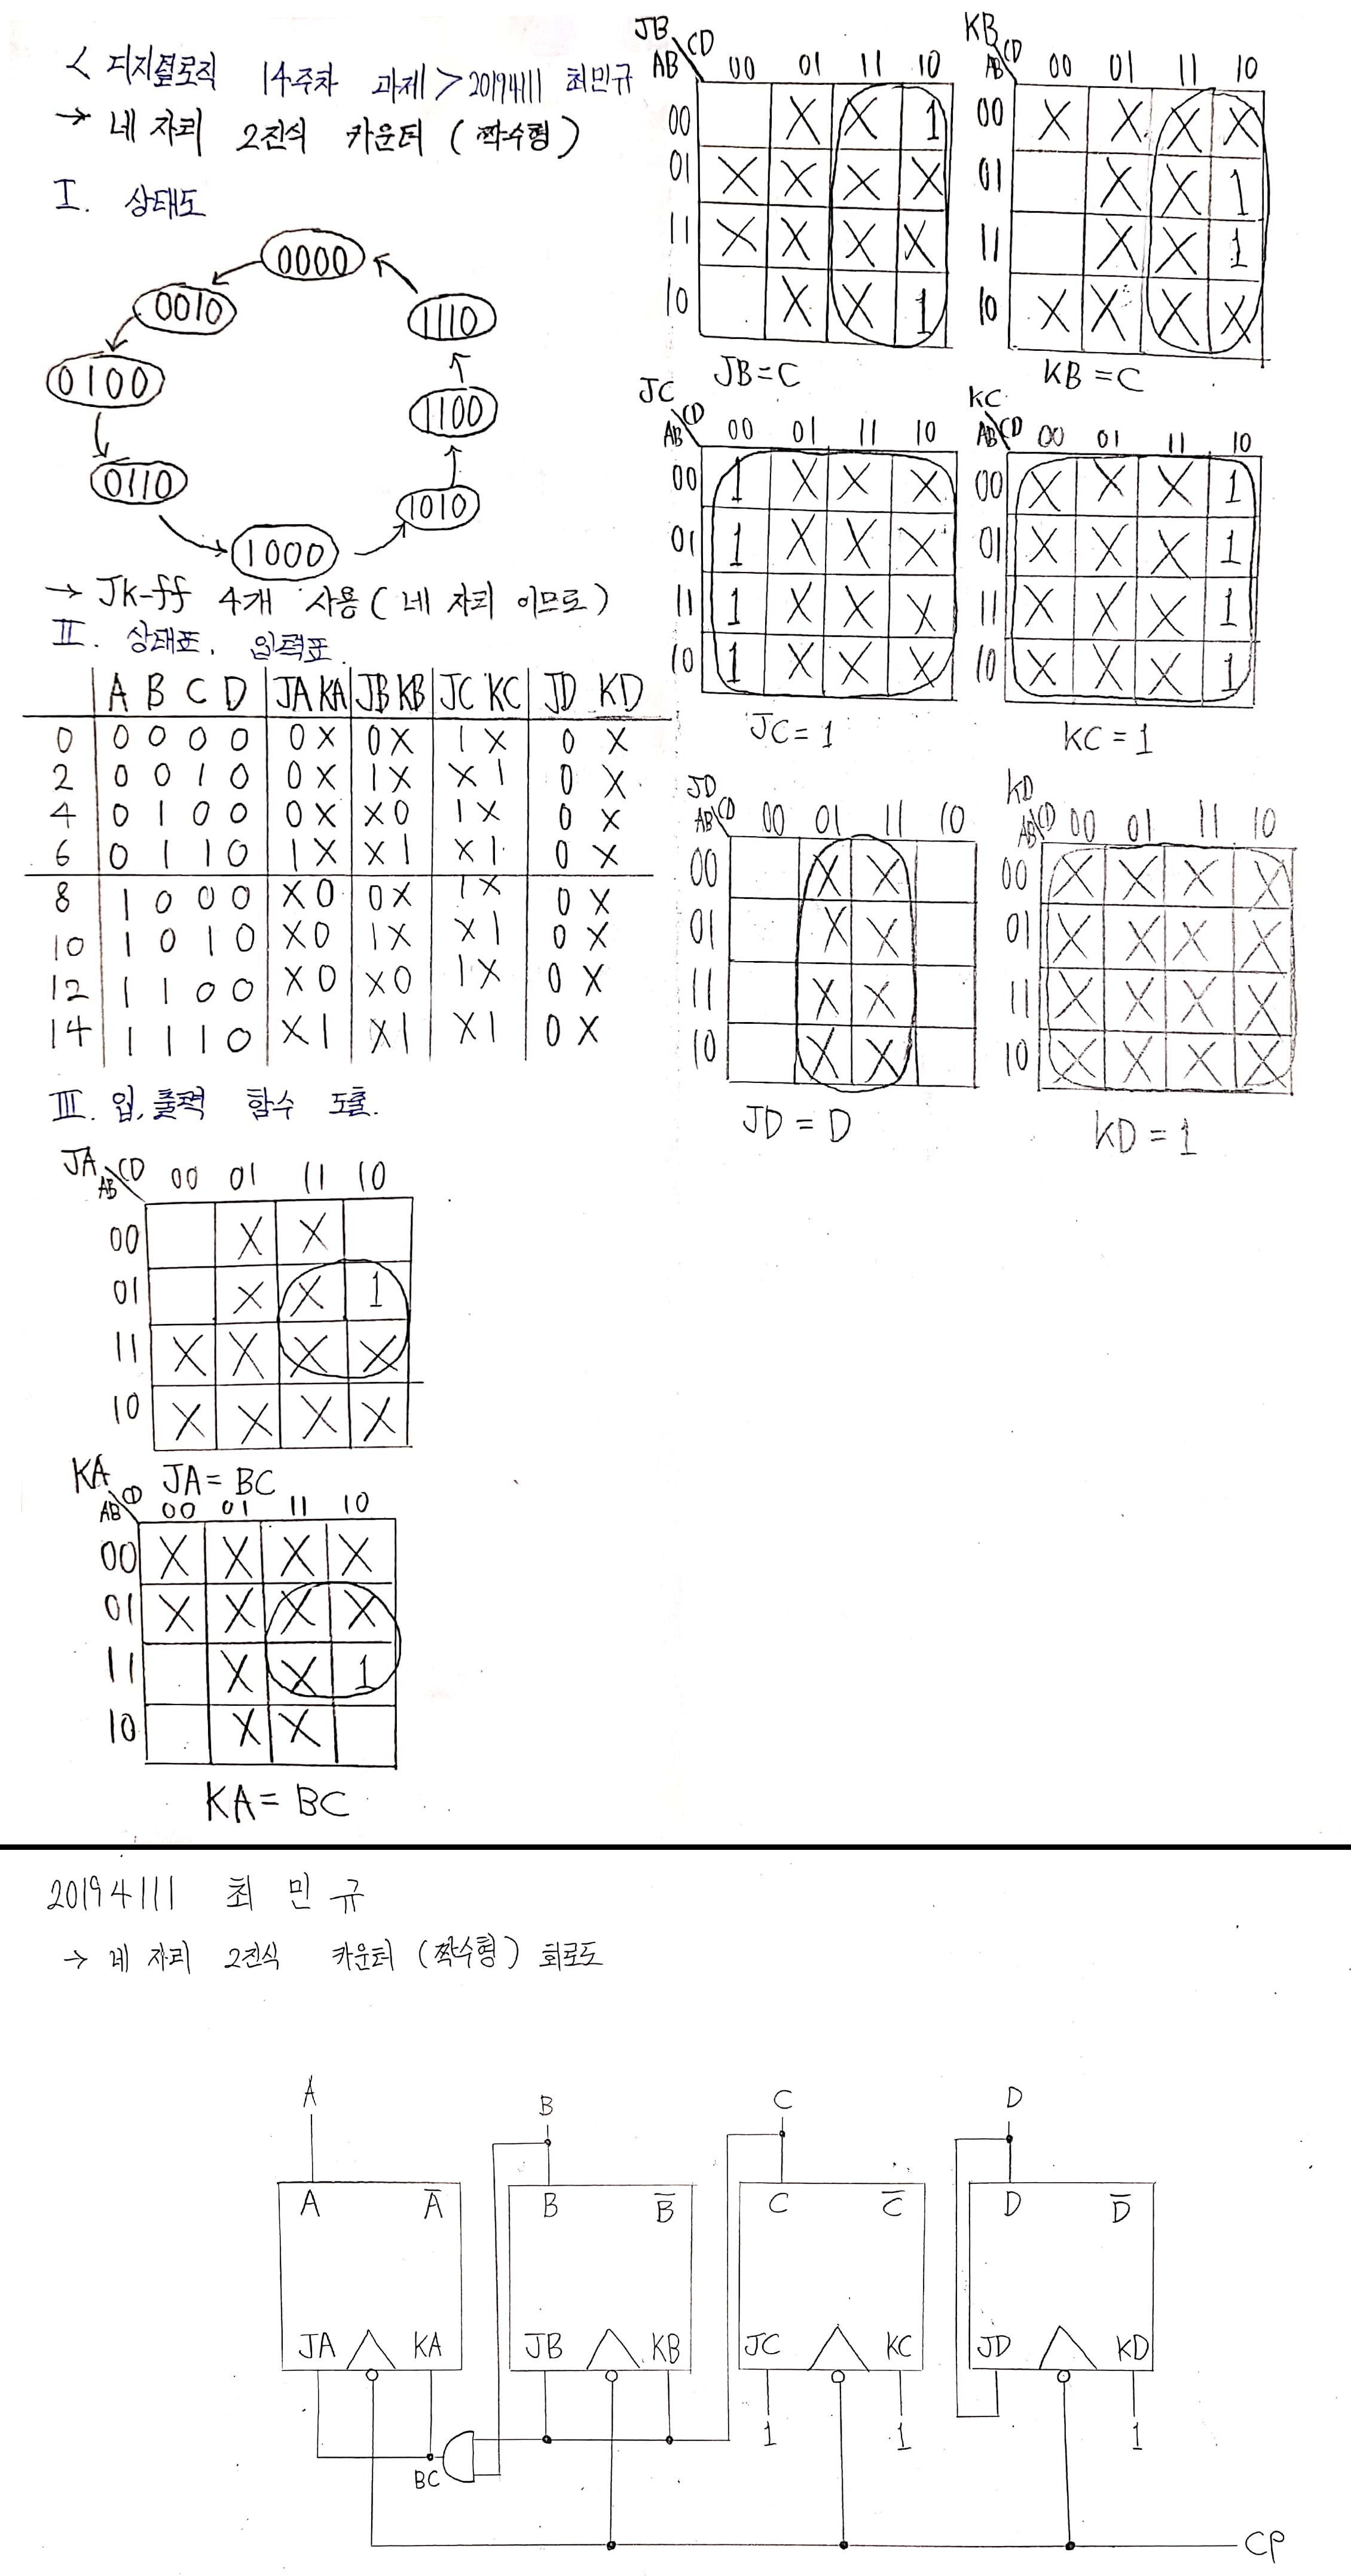 < 디지털로직 14주차 과제 > 20194111 최민규
→ 네 자리 2진식 카운터 (짝수형)
I. 상태도
0000
0010
0100
0110
1000
1010
1100
1110
→ JK-ff 4개 사용 (네 자리 이므로)
II. 상태표, 입력표.
A B C D JA KA JB KB JC KC JD KD
0 0 0 0 0 0 X 0 X 1 X 0 X
2 0 0 1 0 0 X 1 X X 1 0 X
4 0 1 0 0 0 X X 0 1 X 0 X
6 0 1 1 0 1 X X 1 X 1 0 X
8 1 0 0 0 X 0 0 X 1 X 0 X
10 1 0 1 0 X 0 1 X X 1 0 X
12 1 1 0 0 X 0 X 0 1 X 0 X
14 1 1 1 0 X 1 X 1 X 1 0 X
III. 입,출력 함수 도출.
JA CD 00 01 11 10
AB
00 X X
01 X X 1
11 X X X X
10 X X X X
JA = BC
KA CD 00 01 11 10
AB
00 X X X X
01 X X X X
11 X X 1
10 X X
KA = BC
JB CD 00 01 11 10
AB
00 X X 1
01 X X X X
11 X X X X
10 X X 1
JB = C
KB CD 00 01 11 10
AB
00 X X X X
01 X X 1
11 X X 1
10 X X X X
KB = C
JC CD 00 01 11 10
AB
00 1 X X X
01 1 X X X
11 1 X X X
10 1 X X X
JC = 1
KC CD 00 01 11 10
AB
00 X X X 1
01 X X X 1
11 X X X 1
10 X X X 1
KC = 1
JD CD 00 01 11 10
AB
00 X X
01 X X
11 X X
10 X X
JD = D
KD CD 00 01 11 10
AB
00 X X X X
01 X X X X
11 X X X X
10 X X X X
KD = 1
20194111 최민규
→ 네 자리 2진식 카운터 (짝수형) 회로도
A B C D
A A̅ B B̅ C C̅ D D̅
JA KA JB KB JC KC JD KD
1 1 1
BC
CP